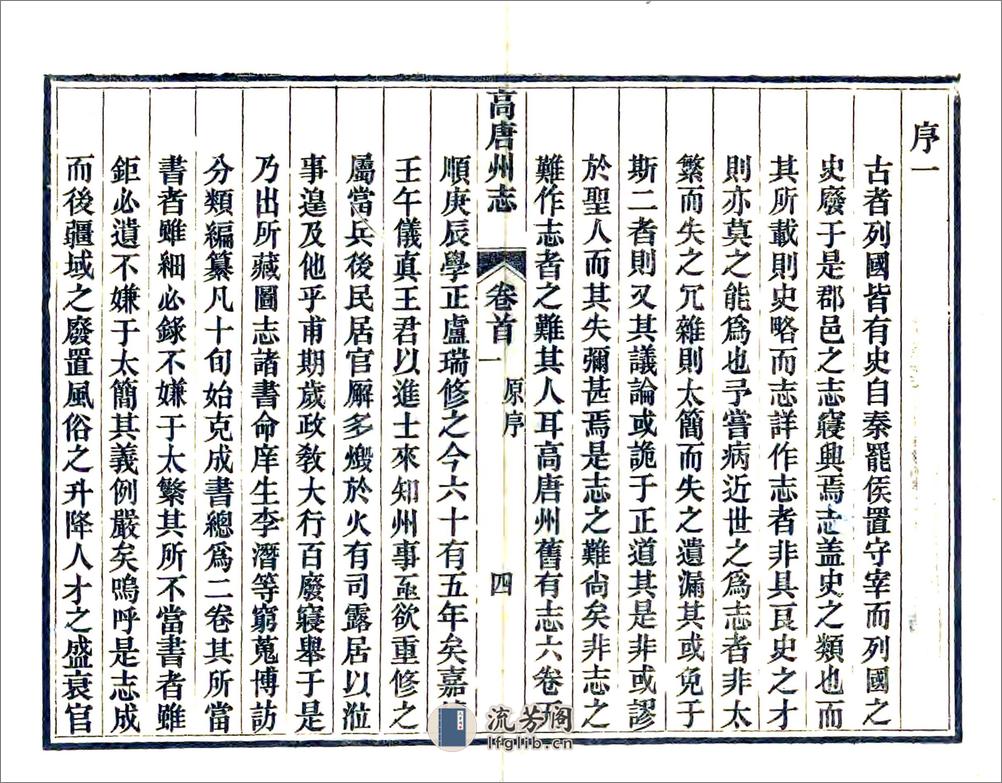 序一
古者列國皆有史自秦罷矦置守宰而列國之
史廢于是郡邑之志寖興焉志盖史之類也而
其所載則史略而志詳作志者非具良史之才
則亦莫之能爲也予嘗病近世之爲志者非太
繁而失之冗雜則太簡而失之遺漏其或免于
斯二者則又其議論或詭于正道其是非或謬
於聖人而其失彌甚焉是志之難尙矣非志之
難作志者之難其人耳高唐州舊有志六卷
高唐州志
卷首一
原序
四
順庚辰學正盧瑞修之今六十有五年矣嘉
壬午儀真王君以進士來知州事亟欲重修之
屬當兵後民居官廨多燬於火有司露居以涖
事遑及他乎甫期歲政敎大行百廢寖舉于是
乃出所藏圖志諸書命庠生李潛等窮蒐博訪
分類編纂凡十旬始克成書總爲二卷其所當
書者雖細必錄不嫌于太繁其所不當書者雖
鉅必遺不嫌于太簡其義例嚴矣嗚呼是志成
而後疆域之廢置風俗之升降人才之盛衰官
流芳阁
lfglib.cn